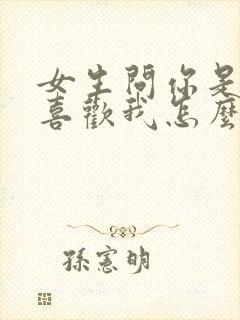 女生問你是
喜歡我怎麼
孫憲明